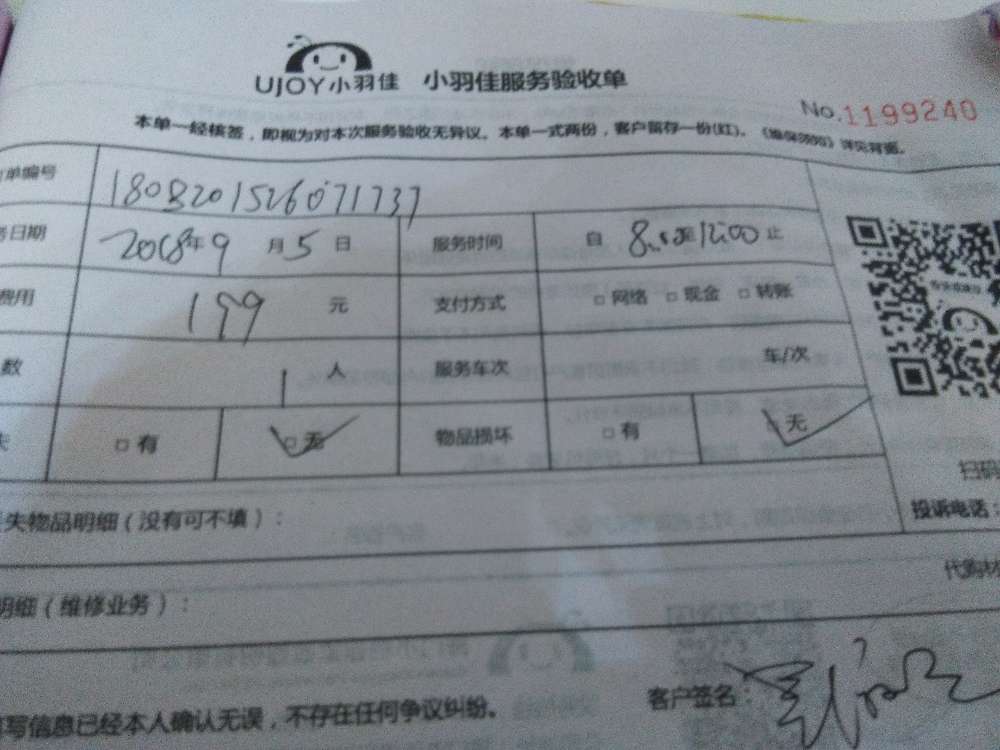 UJOY小羽佳 小羽佳服务验收单
No.1199240
本单一经核签，即视为对本次服务验收无异议。本单一式两份，客户留存一份(红)。《维保须知》详见背面。
单编号 1808201526071737
务日期 2018年9月5日 服务时间 自 8:00至12:00止
费用 199元 支付方式 □网络 □现金 □转账
数 1人 服务车次 车/次
失 □有 □无 物品损坏 □有 □无
扫码
失物品明细（没有可不填）： 投诉电话：
明细（维修业务）： 代购材
写信息已经本人确认无误，不存在任何争议纠纷。 客户签名：